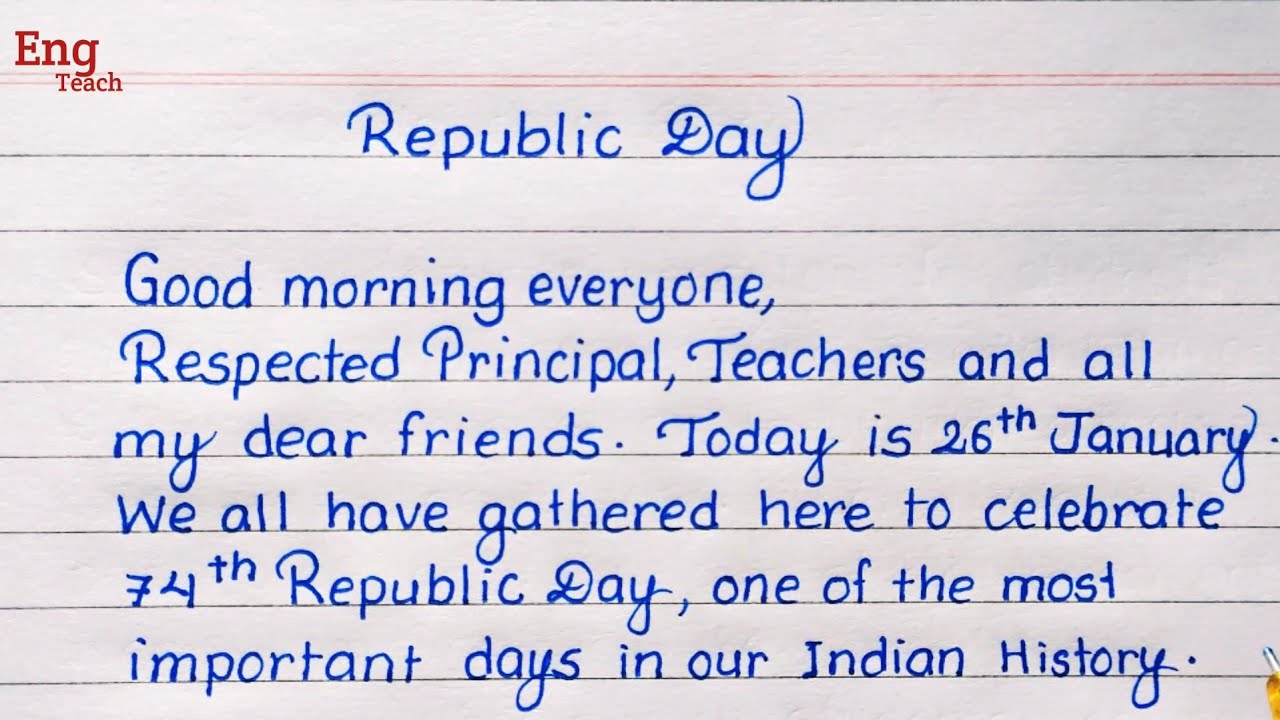 Eng
Teach
Republic Day
Good morning everyone,
Respected Principal, Teachers and all
my dear friends. Today is 26th January.
We all have gathered here to celebrate
74th Republic Day, one of the most
important days in our Indian History.